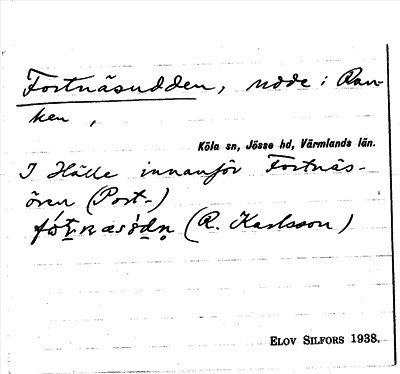 Fortnäsudden, udde i Ran-
ken,
Köla sn, Jösse hd, Värmlands län.
I Hälle innanför Fortnäs-
ören (Port-)
(R. Karlsson)
ELOV SILFORS 1938.